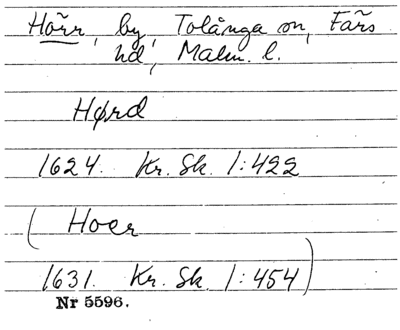 Hörr, by, Tolånga sn, Färs
hd, Malm. l.
Hørd
1624. Kr. Sk. 1:422
(Hoer
1631. Kr. Sk. 1:454)
Nr 5596.